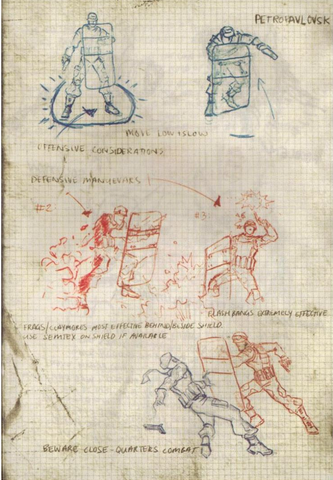 PETROPAVLOVSK
MOVE LOW+SLOW
OFFENSIVE CONSIDERATIONS
DEFENSIVE MANUEVARS
#2
#3
FLASHBANGS EXTREMELY EFFECTIVE
FRAGS/CLAYMORES MOST EFFECTIVE BEHIND/BESIDE SHIELD.
USE SEMTEX ON SHIELD IF AVAILABLE
BEWARE CLOSE-QUARTERS COMBAT